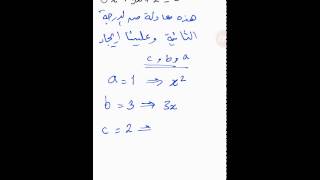 هذه معادلة من الدرجة
الثانية وعلينا إيجاد
c و b و a
a = 1 ⇒ x²
b = 3 ⇒ 3x
c = 2 ⇒